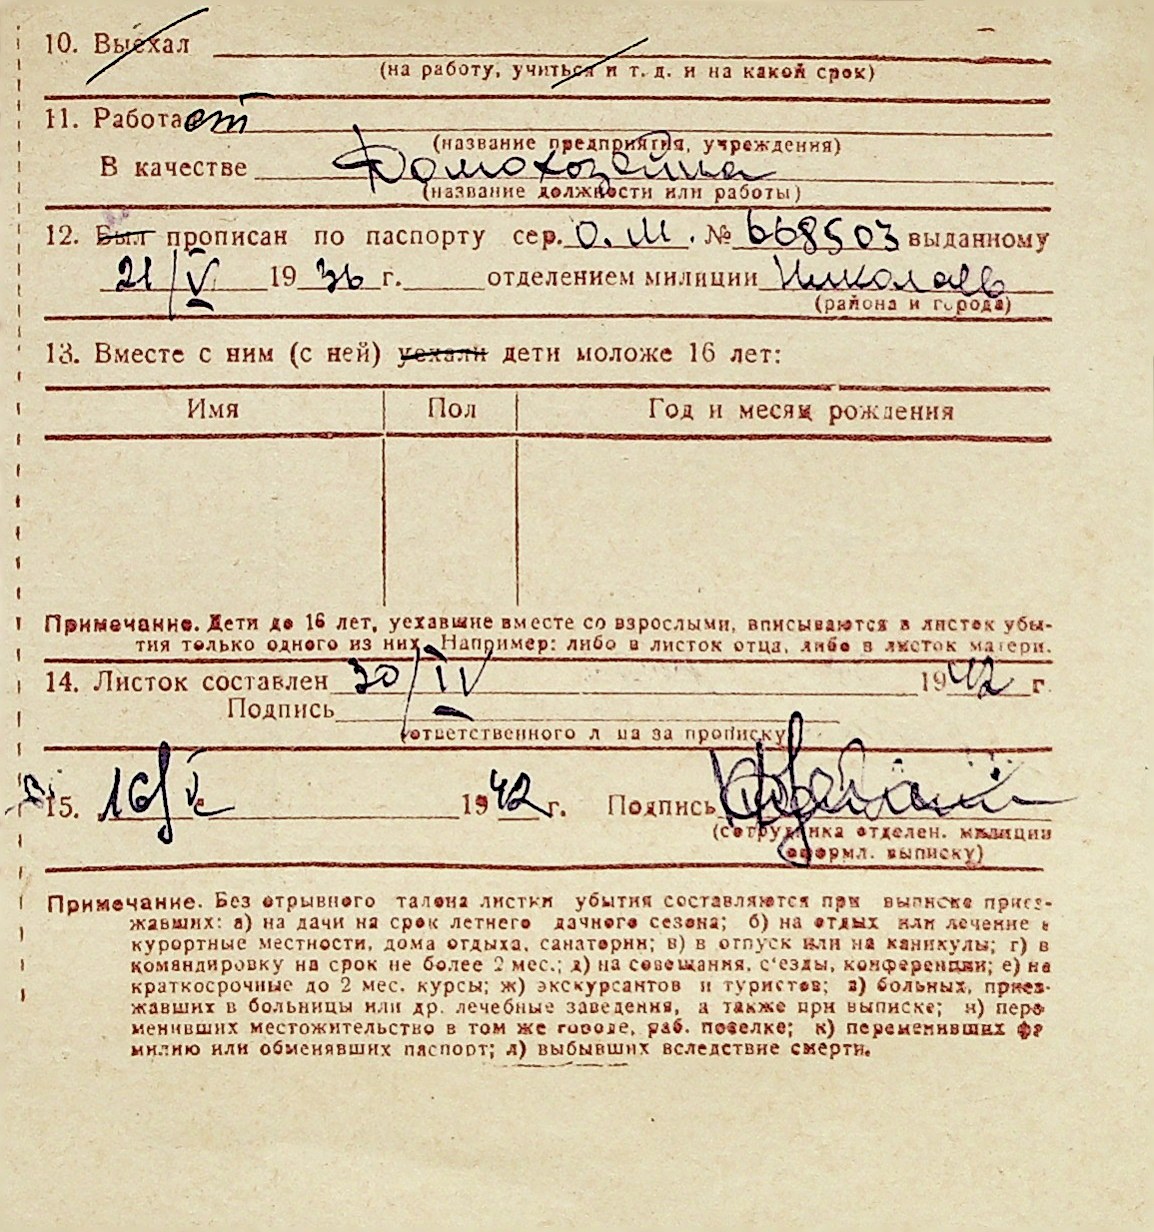 10. Выехал
(на работу, учиться и т. д. и на какой срок)
11. Работает
(название предприятия, учреждения)
В качестве Домохозяйка
(название должности или работы)
12. Был прописан по паспорту сер. О.М. № 668503 выданному
21/V 1936 г. отделением милиции Николаев
(района и города)
13. Вместе с ним (с ней) уехали дети моложе 16 лет:
Имя Пол Год и месяц рождения
Примечание. Дети до 16 лет, уехавшие вместе со взрослыми, вписываются в листок убы-
тия только одного из них. Например: либо в листок отца, либо в листок матери.
14. Листок составлен 30/IV 1942 г.
Подпись
(ответственного лица за прописку)
15. 16/V 1942 г. Подпись
(сотрудника отделен. милиции
оформл. выписку)
Примечание. Без отрывного талона листки убытия составляются при выписке приез-
жавших: а) на дачи на срок летнего дачного сезона; б) на отдых или лечение в
курортные местности, дома отдыха, санатории; в) в отпуск или на каникулы; г) в
командировку на срок не более 2 мес.; д) на совещания, с'езды, конференции; е) на
краткосрочные до 2 мес. курсы; ж) экскурсантов и туристов; з) больных, приез-
жавших в больницы или др. лечебные заведения, а также при выписке; и) пере
менивших местожительство в том же городе, раб. поселке; к) переменивших фа
милию или обменявших паспорт; л) выбывших вследствие смерти.